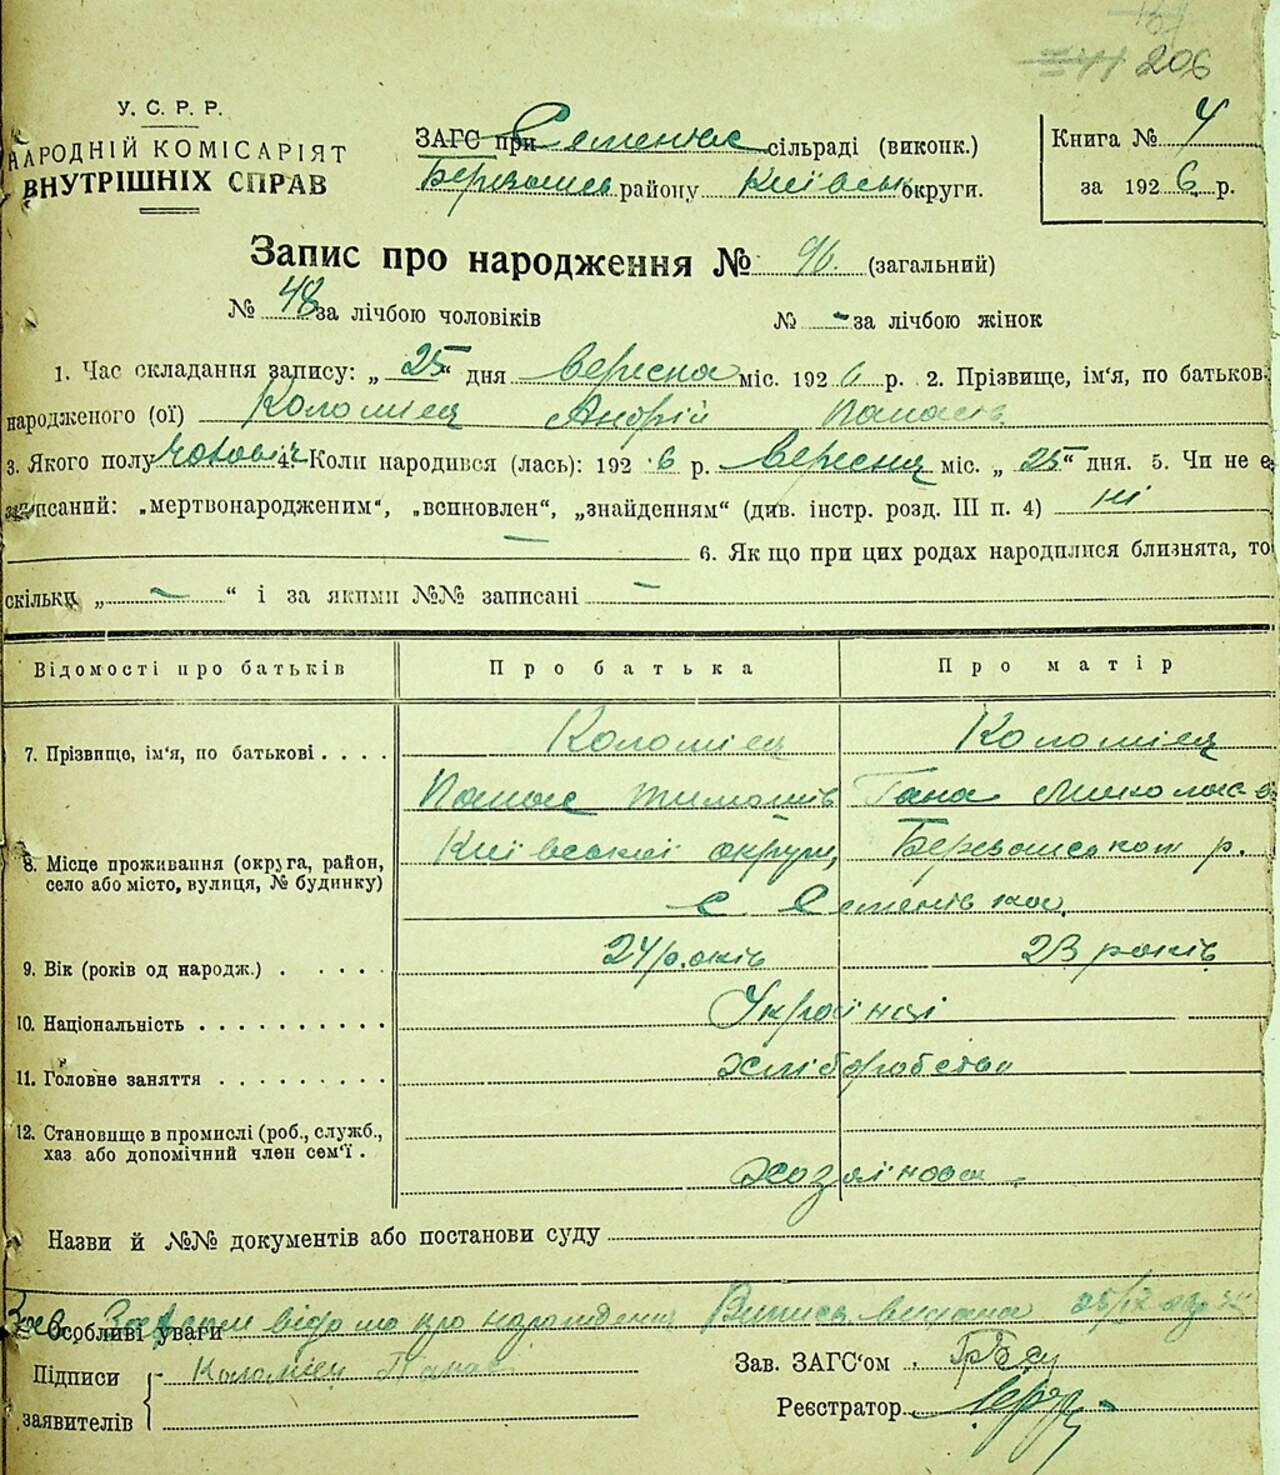 206
У. С. Р. Р.
НАРОДНІЙ КОМІСАРІЯТ
ВНУТРІШНІХ СПРАВ
ЗАГС при Семенівс сільраді (виконк.)
району Київськ округи.
Книга № 4
за 1926 р.
Запис про народження № 96. (загальний)
№ 48 за лічбою чоловіків № - за лічбою жінок
1. Час складання запису: „ 25 “ дня Вересня міс. 1926 р. 2. Прізвище, ім'я, по батьков.
народженого (ої) Коломієц Андрій Панасів
3. Якого полу 4. Коли народився (лась): 1926 р. Вересня міс. „ 25 “ дня. 5. Чи не є
записаний: „мертвонародженим“, „всиновлен“, „знайденням“ (див. інстр. розд. III п. 4) ні
— 6. Як що при цих родах народилися близнята, то
скільки „ — “ і за якими №№ записані —
Відомості про батьків Про батька Про матір
7. Прізвище, ім'я, по батькові . . . . Коломієц Коломієц
Панас Тимошів Гана
8. Місце проживання (округа, район,
село або місто, вулиця, № будинку)
Київської округи, р.
с Семенівка
9. Вік (років од народж.) . . . . . 24 років 23 років
10. Національність . . . . . . . . . . Українці
11. Головне заняття . . . . . . . . . Хліборобство
12. Становище в промислі (роб., служб.,
хаз або допомічний член сем'ї .
Хозяінова
Назви й №№ документів або постанови суду
Особливі уваги про Випись видана
Підписи
заявителів
Коломієц Панас
Зав. ЗАГС'ом .
Реєстратор